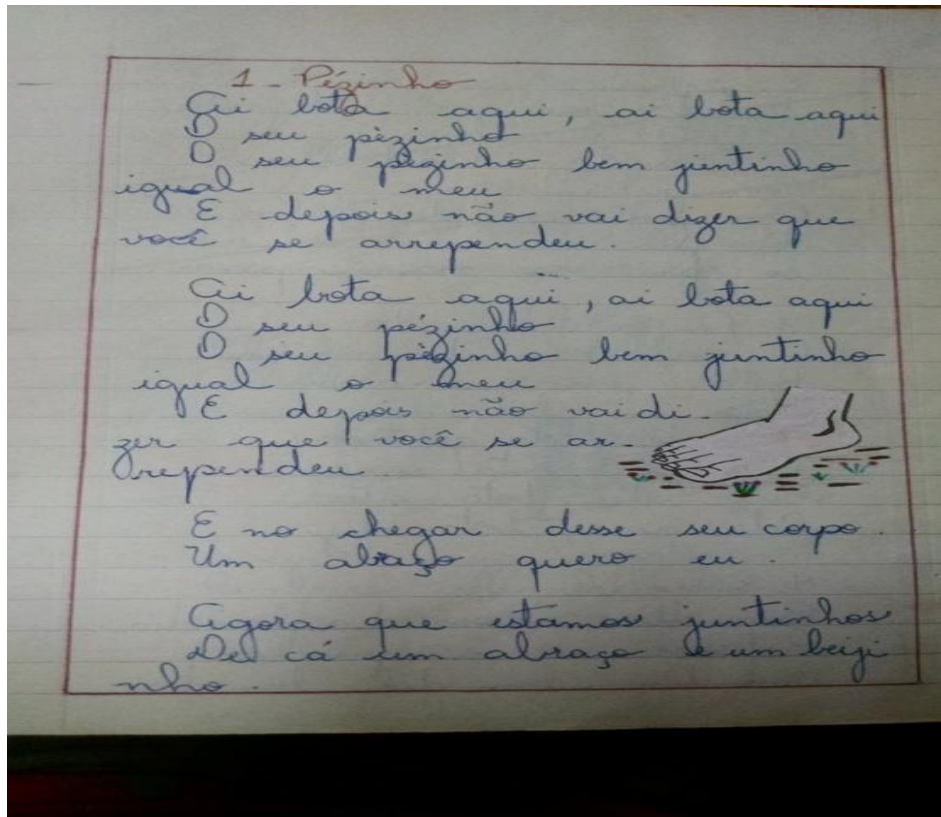 1 - Pézinho
Ai bota aqui, ai bota aqui
O seu pèzinho
O seu pèzinho bem juntinho
igual o meu
E depois não vai dizer que
você se arrependeu.
Ai bota aqui, ai bota aqui
O seu pézinho
O seu pèzinho bem juntinho
igual o meu
E depois não vai di-
zer que você se ar-
rependeu
E no chegar desse seu corpo.
Um abraço quero eu.
Agora que estamos juntinhos
cá um abraço e um beiji
nho.